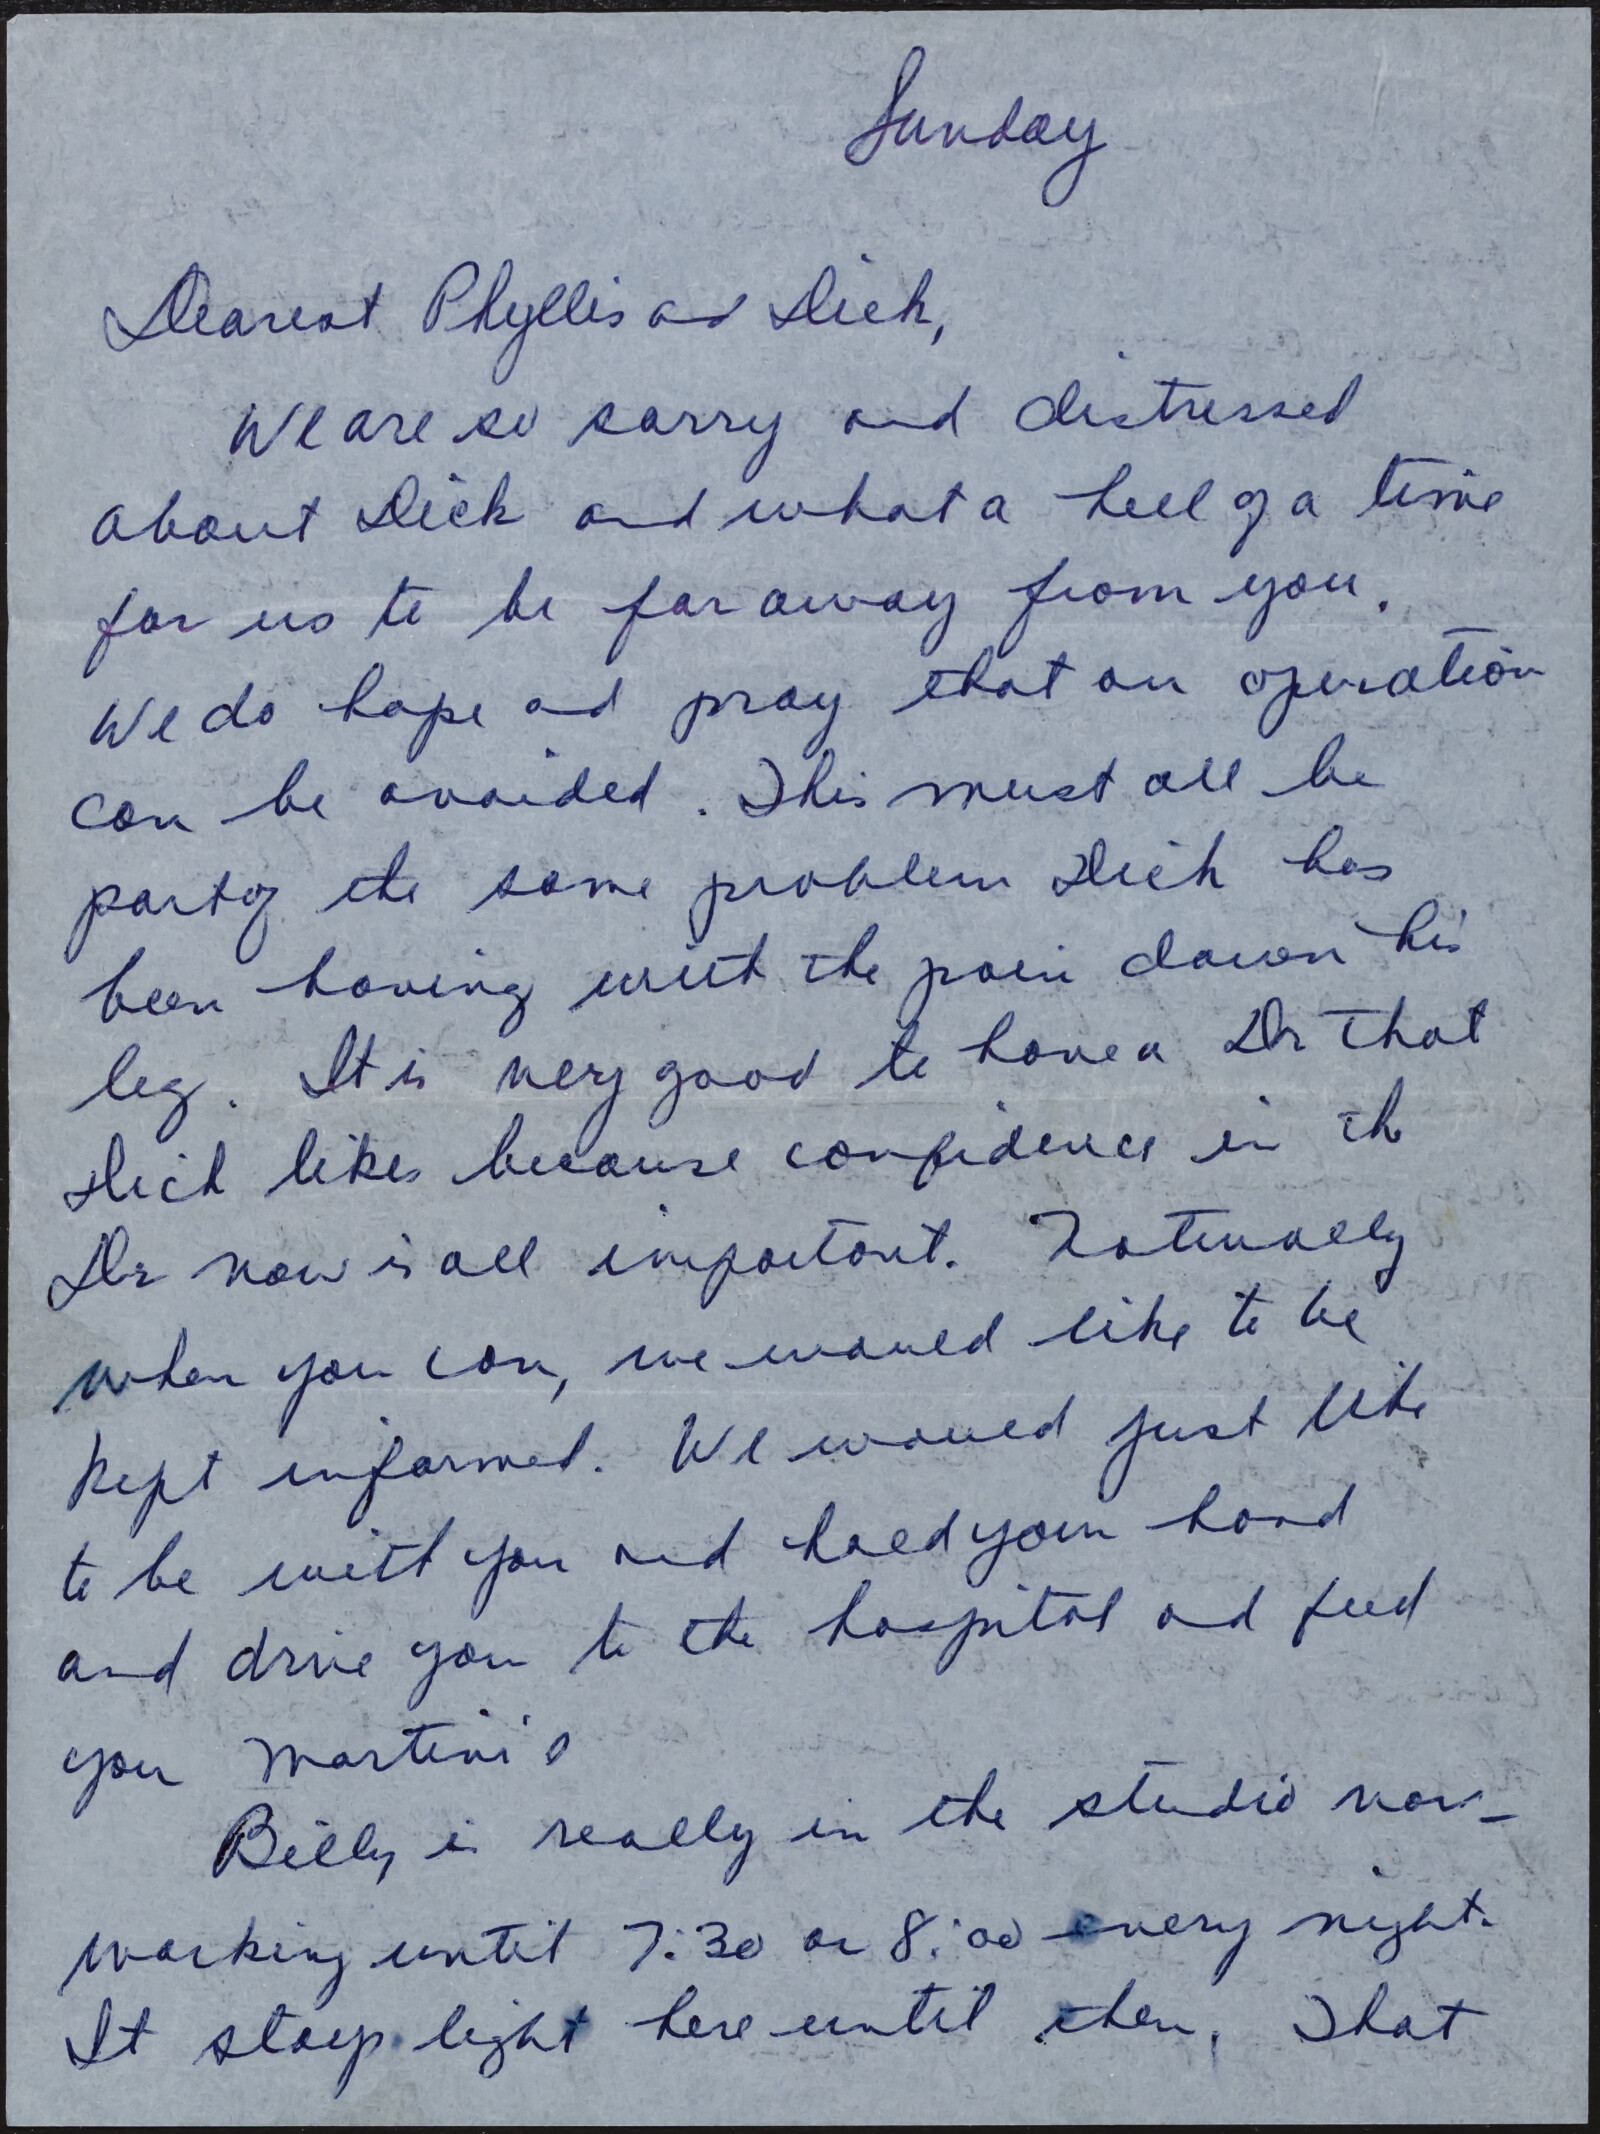 Sunday
Dearest Phyllis and Dick,
We are so sorry and distressed
about Dick and what a hell of a time
for us to be far away from you.
We do hope and pray that an operation
can be avoided. This must all be
part of the same problem Dick has
been having with the pain down his
leg. It is very good to have a Dr that
Dick likes because confidence in the
Dr now is all important. Naturally
when you can, we would like to be
kept informed. We would just like
to be with you and hold your hand
and drive you to the hospital and feed
you Martini's
Billy is really in the studio now-
working until 7:30 or 8:00 every night.
It stays light here until then. That